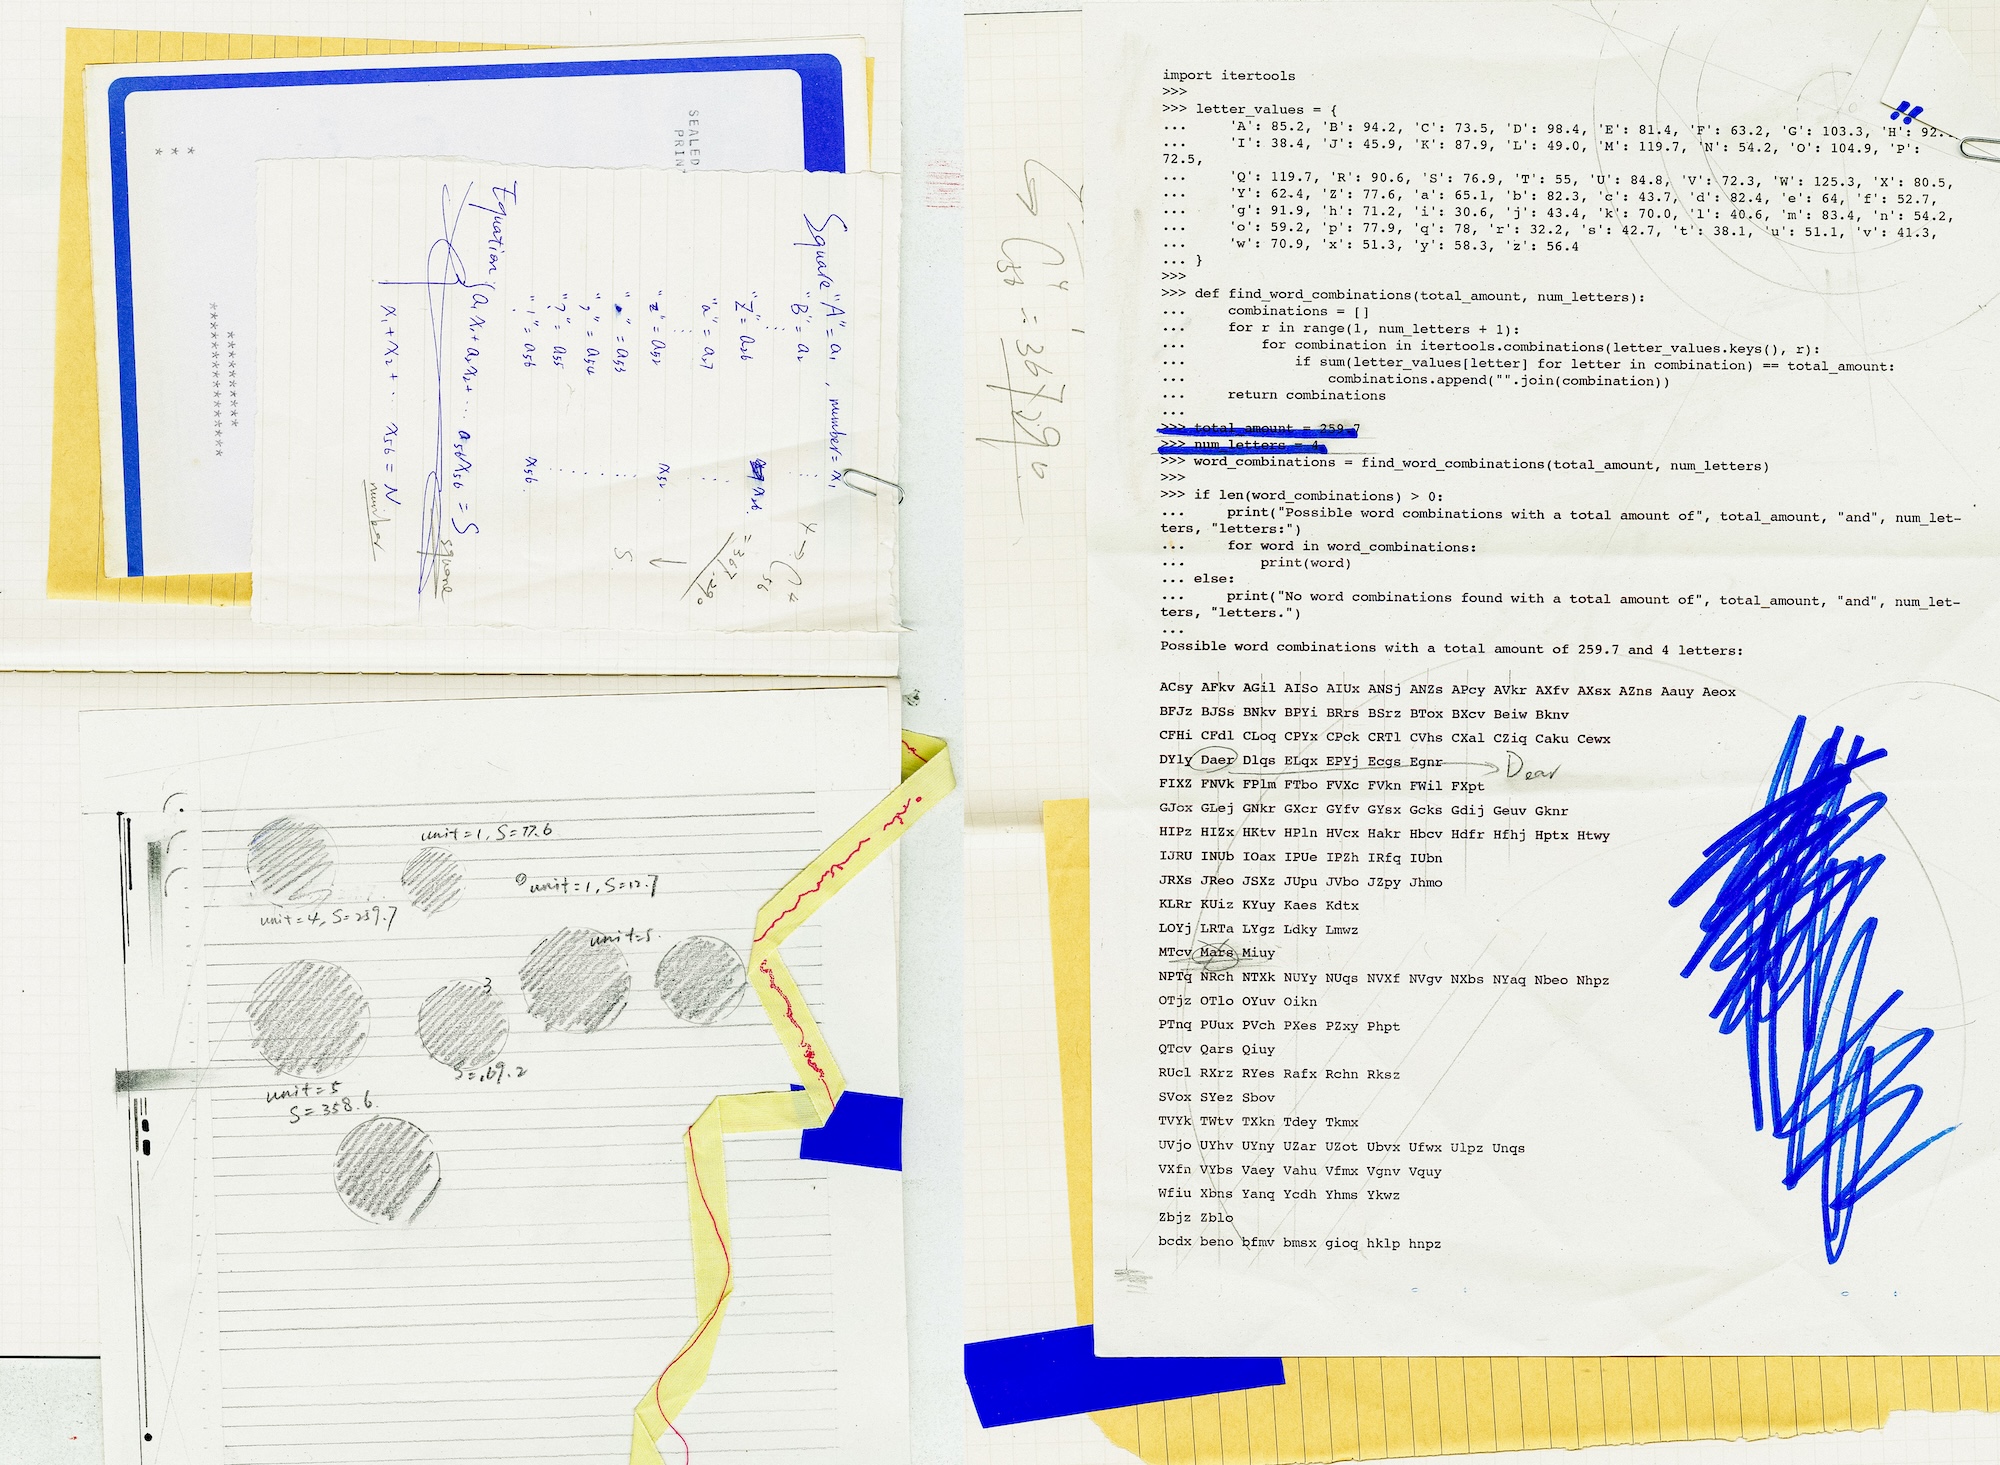 SEALED
PRIN
* * *
Square "A" = a₁ , number = x₁
"B" = a₂
"Z" = a₂₆ x₂₆.
"a" = a₂₇
"z" = a₅₂ x₅₂
" " = a₅₃
"," = a₅₄
"?" = a₅₅
"!" = a₅₆ x₅₆.
Equation { a₁x₁ + a₂x₂ + ... a₅₆x₅₆ = S
square
x₁ + x₂ + .. x₅₆ = N
number
4 → C₅₆⁴
= 367.290
S
unit=1, S=77.6
unit=1, S=12.7
unit=4, S=259.7
unit=5.
3
S=169.2
unit=5
S=358.6.
C₅₆⁴ = 367290
import itertools
>>>
>>> letter_values = {
... 'A': 85.2, 'B': 94.2, 'C': 73.5, 'D': 98.4, 'E': 81.4, 'F': 63.2, 'G': 103.3, 'H': 92.
... 'I': 38.4, 'J': 45.9, 'K': 87.9, 'L': 49.0, 'M': 119.7, 'N': 54.2, 'O': 104.9, 'P':
72.5,
... 'Q': 119.7, 'R': 90.6, 'S': 76.9, 'T': 55, 'U': 84.8, 'V': 72.3, 'W': 125.3, 'X': 80.5,
... 'Y': 62.4, 'Z': 77.6, 'a': 65.1, 'b': 82.3, 'c': 43.7, 'd': 82.4, 'e': 64, 'f': 52.7,
... 'g': 91.9, 'h': 71.2, 'i': 30.6, 'j': 43.4, 'k': 70.0, 'l': 40.6, 'm': 83.4, 'n': 54.2,
... 'o': 59.2, 'p': 77.9, 'q': 78, 'r': 32.2, 's': 42.7, 't': 38.1, 'u': 51.1, 'v': 41.3,
... 'w': 70.9, 'x': 51.3, 'y': 58.3, 'z': 56.4
... }
>>>
>>> def find_word_combinations(total_amount, num_letters):
... combinations = []
... for r in range(1, num_letters + 1):
... for combination in itertools.combinations(letter_values.keys(), r):
... if sum(letter_values[letter] for letter in combination) == total_amount:
... combinations.append("".join(combination))
... return combinations
...
>>> total_amount = 259.7
>>> num_letters = 4
>>> word_combinations = find_word_combinations(total_amount, num_letters)
>>>
>>> if len(word_combinations) > 0:
... print("Possible word combinations with a total amount of", total_amount, "and", num_let-
ters, "letters:")
... for word in word_combinations:
... print(word)
... else:
... print("No word combinations found with a total amount of", total_amount, "and", num_let-
ters, "letters.")
...
Possible word combinations with a total amount of 259.7 and 4 letters:
ACsy AFkv AGil AISo AIUx ANSj ANZs APcy AVkr AXfv AXsx AZns Aauy Aeox
BFJz BJSs BNkv BPYi BRrs BSrz BTox BXcv Beiw Bknv
CFHi CFdl CLoq CPYx CPck CRTl CVhs CXal CZiq Caku Cewx
DYly Daer Dlqs ELqx EPYj Ecgs Egnr Dear
FIXZ FNVk FPlm FTbo FVXc FVkn FWil FXpt
GJox GLej GNkr GXcr GYfv GYsx Gcks Gdij Geuv Gknr
HIPz HIZx HKtv HPln HVcx Hakr Hbcv Hdfr Hfhj Hptx Htwy
IJRU INUb IOax IPUe IPZh IRfq IUbn
JRXs JReo JSXz JUpu JVbo JZpy Jhmo
KLRr KUiz KYuy Kaes Kdtx
LOYj LRTa LYgz Ldky Lmwz
MTcv Mars Miuy
NPTq NRch NTXk NUYy NUqs NVXf NVgv NXbs NYaq Nbeo Nhpz
OTjz OTlo OYuv Oikn
PTnq PUux PVch PXes PZxy Phpt
QTcv Qars Qiuy
RUcl RXrz RYes Rafx Rchn Rksz
SVox SYez Sbov
TVYk TWtv TXkn Tdey Tkmx
UVjo UYhv UYny UZar UZot Ubvx Ufwx Ulpz Unqs
VXfn VYbs Vaey Vahu Vfmx Vgnv Vquy
Wfiu Xbns Yanq Ycdh Yhms Ykwz
Zbjz Zblo
bcdx beno bfmv bmsx gioq hklp hnpz